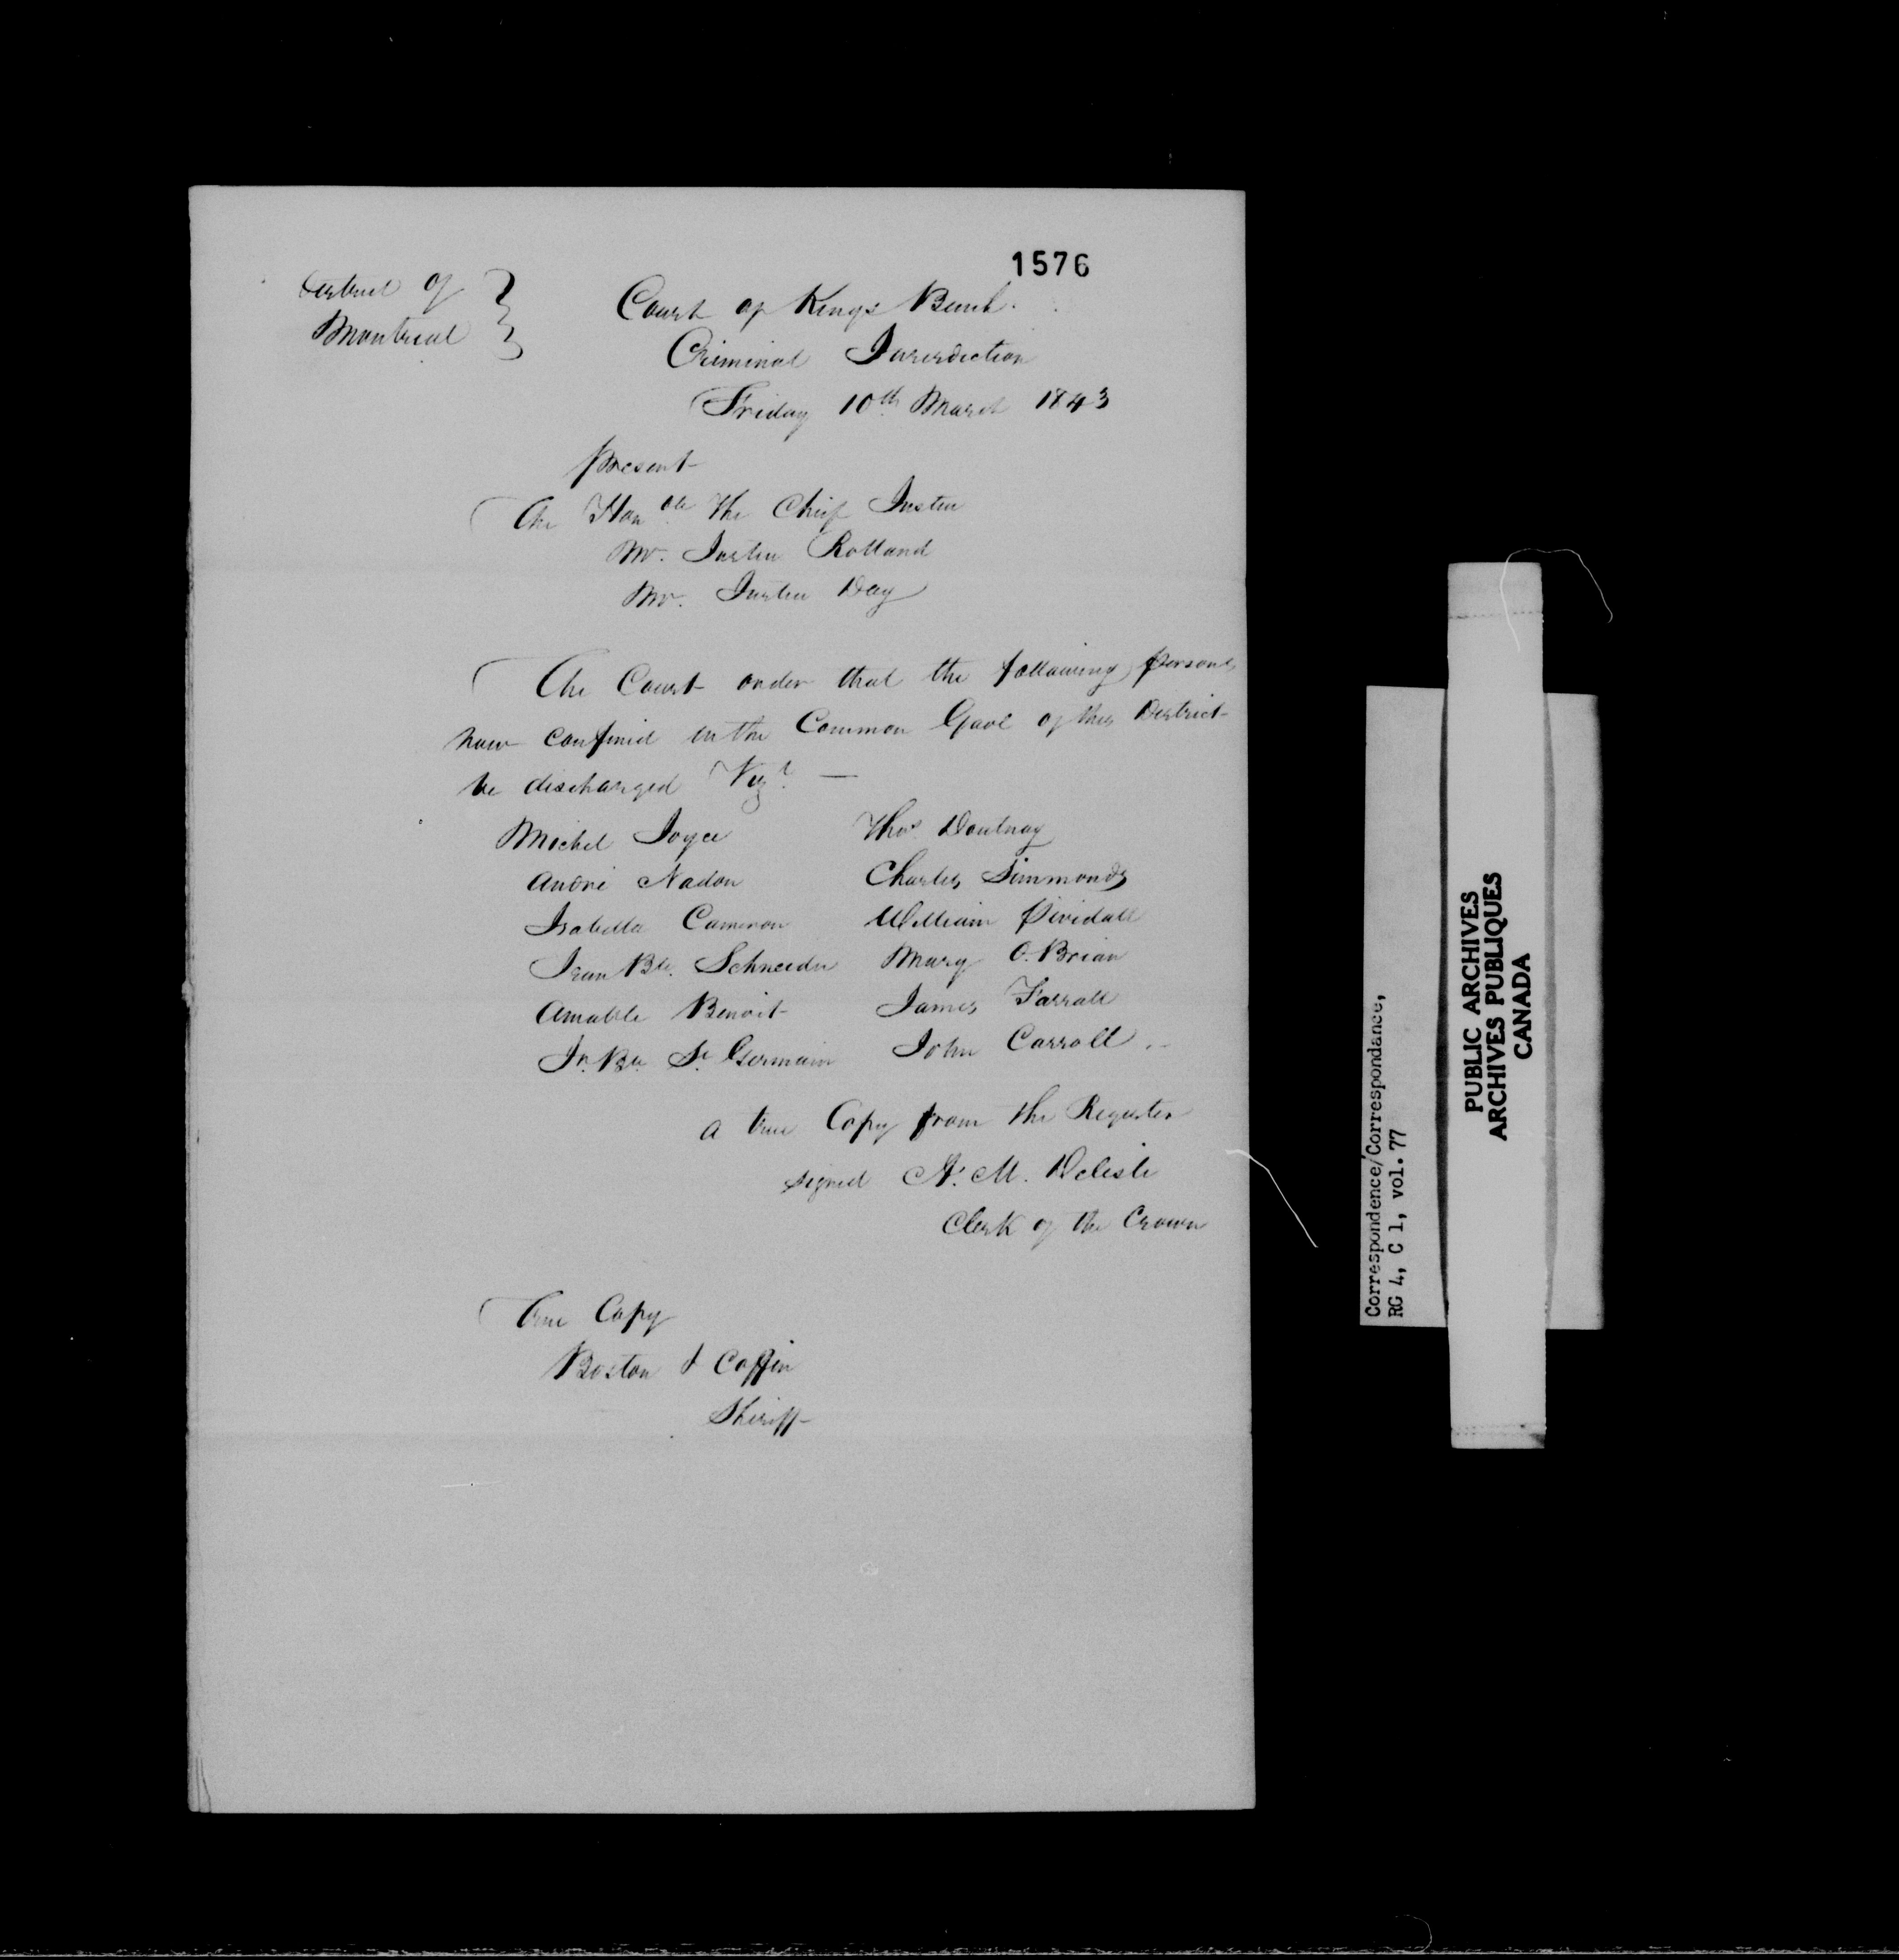 1576
District of
Montreal
Court of Kings Bench.
Criminal Jurisdiction
Friday 10th March 1843
Present
The Honble The Chief Justice
Mr. Justice Rolland
Mr. Justice Day
The Court order that the following persons
now confined in the Common Gaol of this District
be discharged Vizt. —
Michel Joyce Thos. Doutnay
André Nadon Charles Simmonds
Isabella Cameron William
Jean Bte. Schneider Mary O.Brian
Amable Benoit James Farrall
Jn. Bte St Germain John Carroll
a true Copy from the Register
signed A. M. Delisle
Clerk of the Crown
True Copy
Boston & Coffin
Sheriff
Correspondence/Correspondance,
RG 4, C 1, vol. 77
PUBLIC ARCHIVES
ARCHIVES PUBLIQUES
CANADA